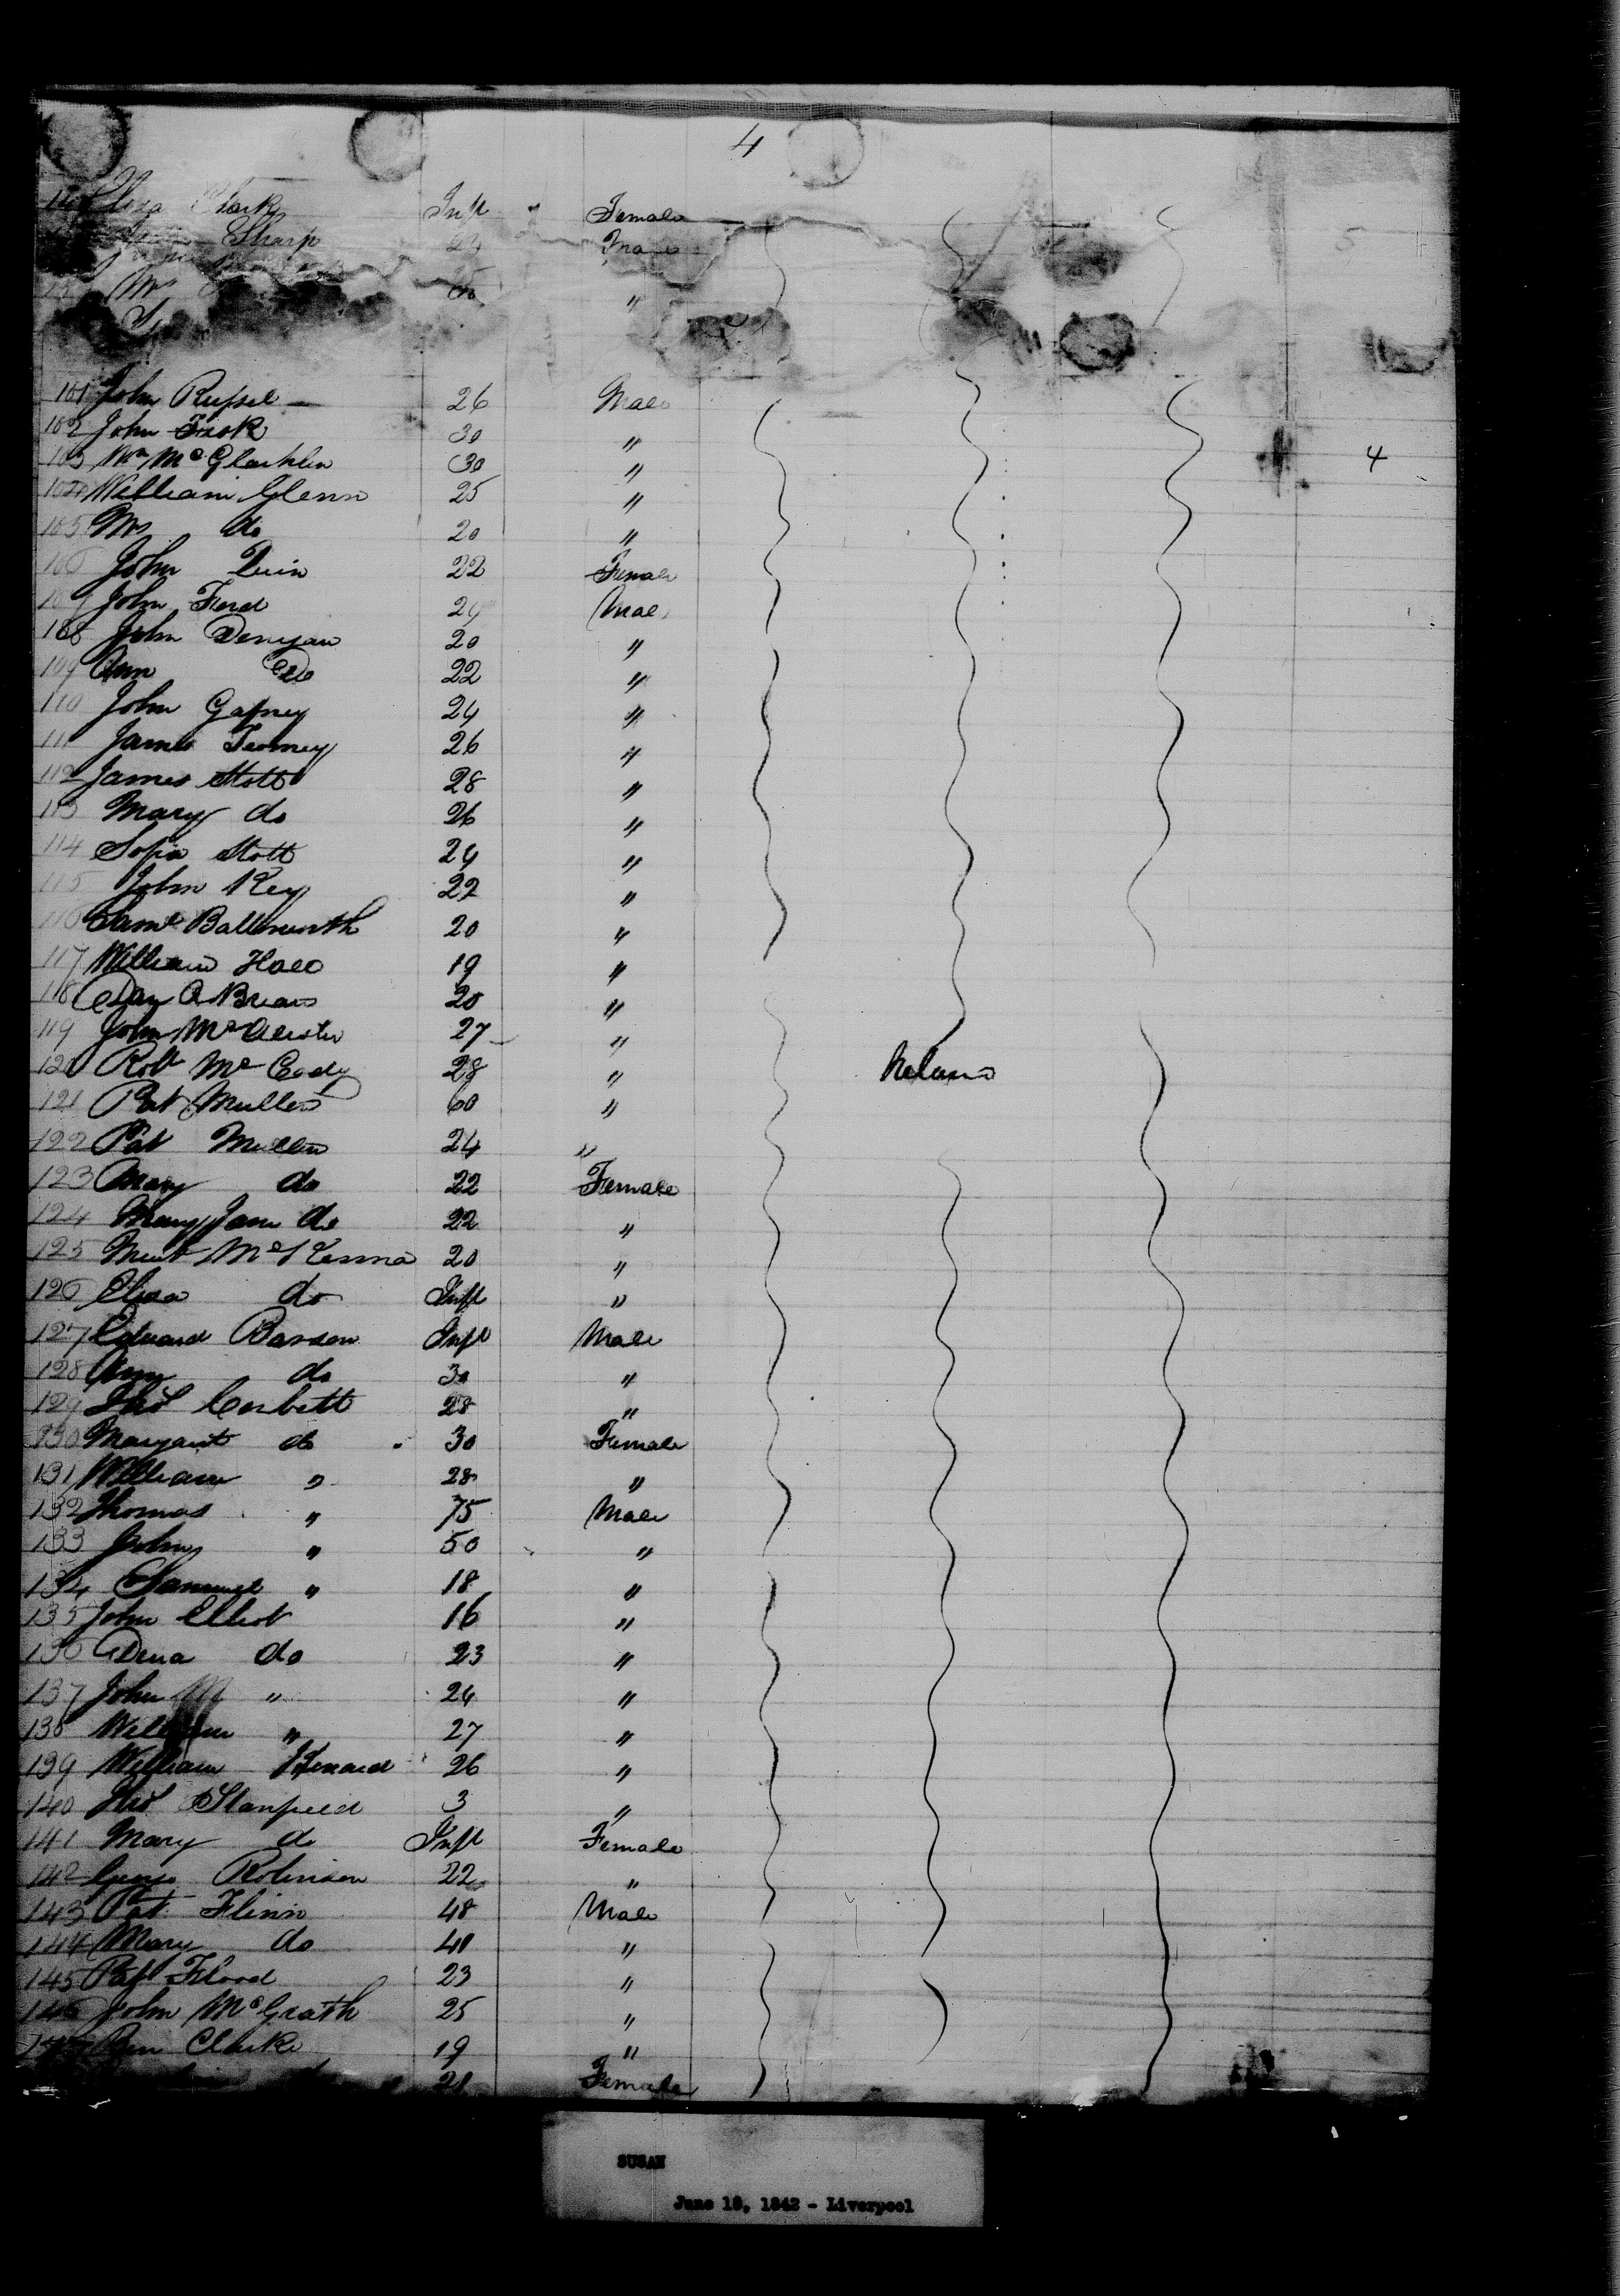 4
Eliza Clark Inft Female
Sharp 24 Male
Mr "
101 John Russel — 26 Male
102 John Fisok 30 "
103 Wm McGlachlen 30 " 4
104 William Glenn 25 "
105 Mrs do 20 "
106 John Quin 22 Female
107 John Ford 24 Male
108 John Denegan 20 "
109 Ann Do 22 "
110 John Gafney 24 "
111 James Tenney 26 "
112 James Stott 28 "
113 Mary do 26 "
114 Sofia Stott 24 "
115 John Key 22 "
116 Saml Ballsworth 20 "
117 William Hall 19 "
118 Dan O Brean 20 "
119 John McAlister 27 "
120 Robt McCady 28 " Ireland
121 Pat Mullen 60 "
122 Pat Mullen 24 "
123 Mary do 22 Female
124 Mary Jane do 22 "
125 McKenna 20 "
126 Eliza do Inft "
127 Edward Barson Inft Male
128 Ann do 30 "
129 Thos Corbett 28 "
130 Margaret do 30 Female
131 William " 28 "
132 Thomas " 75 Male
133 John " 50 "
134 Samuel " 18 "
135 John Elliot 16 "
136 Dena do 23 "
137 John M " 24 "
138 William " 27 "
139 William Kinnard 26 "
140 Thos Stanfield 3 "
141 Mary do Inft Female
142 Robinson 22 "
143 Pat Flinn 48 Male
144 Mary do 40 "
145 Pat Flood 23 "
146 John McGrath 25 "
147 Ben Clarke 19 "
21 Female
SUSAN
June 18, 1842 - Liverpool